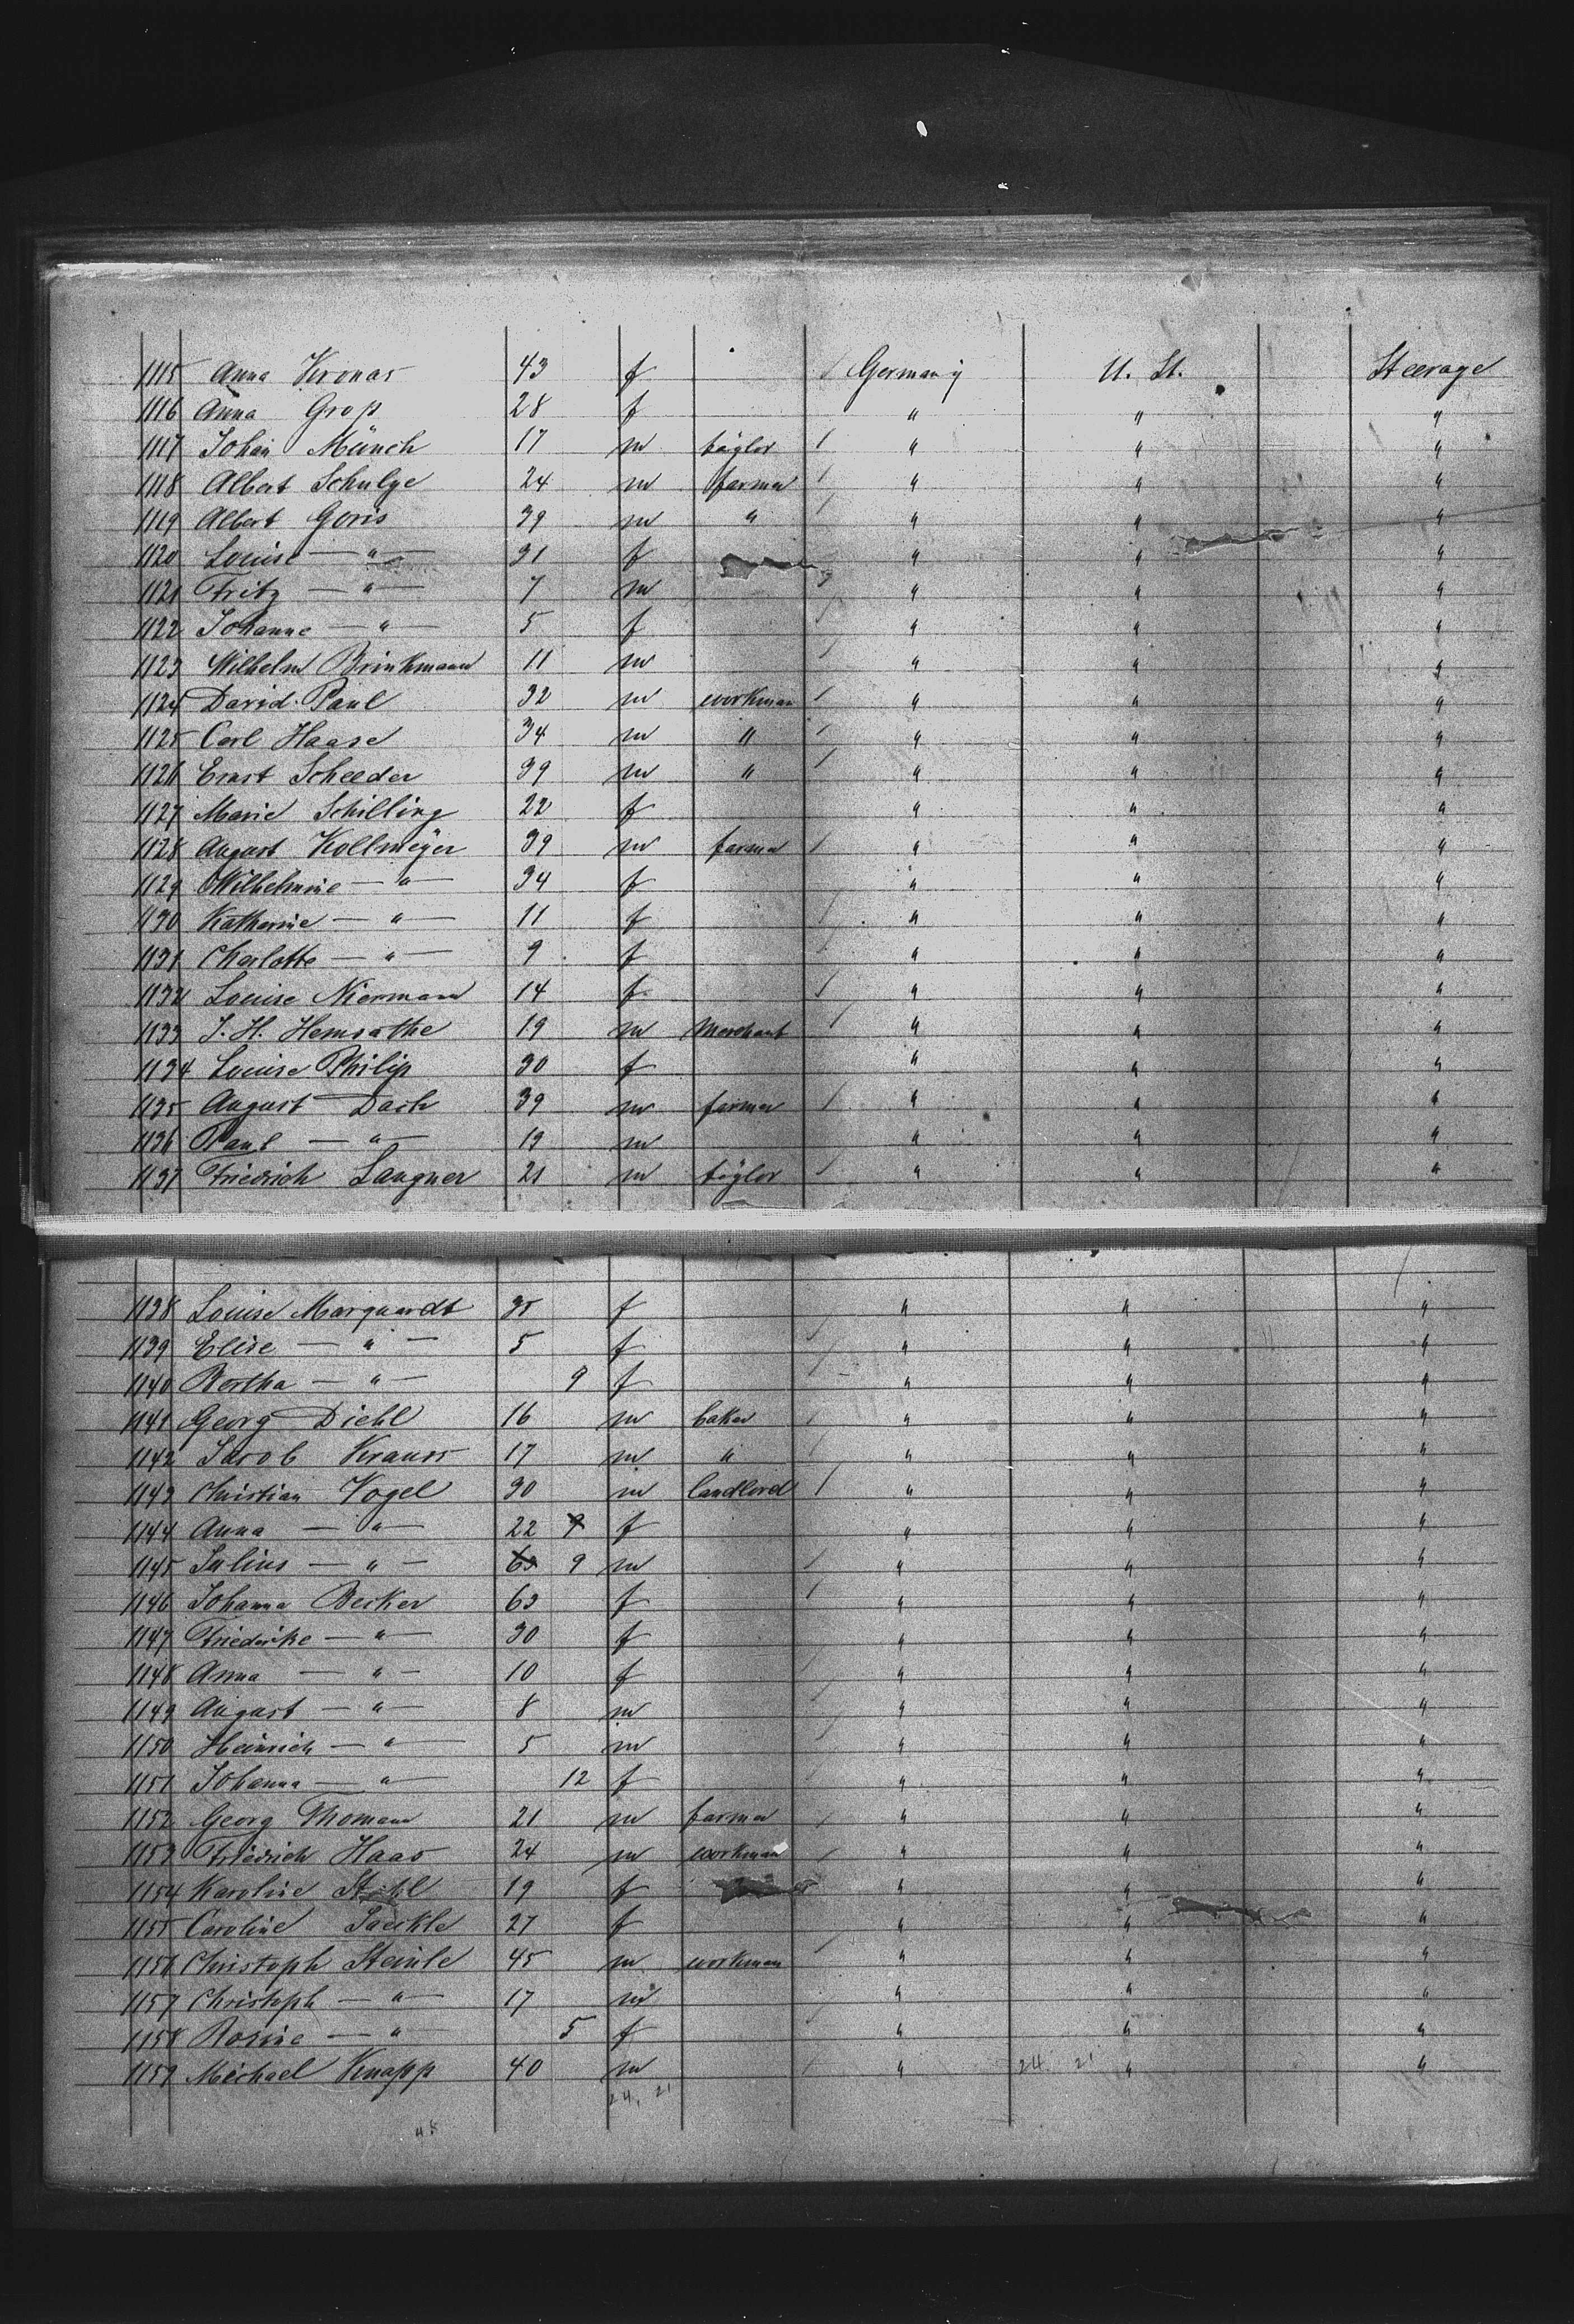 1115 Anna Kronas 43 f Germany U. St. Steerage
1116 Anna Groß 28 f " " "
1117 Johan Münch 17 m täylor " " "
1118 Albert Schulze 24 m farmer " " "
1119 Albert Goris 39 m " " " "
1120 Louise — " — 31 f " " "
1121 Fritz — " — 7 m " " "
1122 Johanne — " — 5 f " " "
1123 Wilhelm Brinkmann 11 m " " "
1124 David Paul 32 m workman " " "
1125 Carl Haase 34 m " " " "
1126 Ernst Scheeder 39 m " " " "
1127 Marie Schilling 22 f " " "
1128 August Kollmeÿer 39 m farmer " " "
1129 Wilhelmine — " — 34 f " " "
1130 Katherine — " — 11 f " " "
1131 Charlotte — " — 9 f " " "
1132 Louise Niermann 14 f " " "
1133 J. H. Hemsathe 19 m Merchant " " "
1134 Louise Philip 30 f " " "
1135 August Dach 39 m farmer " " "
1136 Paul — " — 13 m " " "
1137 Friedrich Langner 21 m täylor " " "
1138 Louise Marquardt 35 f " " "
1139 Elise — " — 5 f " " "
1140 Bertha — " — 9 f " " "
1141 Georg Diehl 16 m baker " " "
1142 Jacob Krauss 17 m " " " "
1143 Christian Vogel 30 m landlord " " "
1144 Anna — " — 22 9 f " " "
1145 Julius — " — 63 9 m " " "
1146 Johanna Becker 63 f " " "
1147 Friederike — " — 30 f " " "
1148 Anna — " — 10 f " " "
1149 August — " — 8 m " " "
1150 Heinrich — " — 5 m " " "
1151 Johanna — " — 12 f " " "
1152 Georg Thomann 21 m farmer " " "
1153 Friedrich Haas 24 m workman " " "
1154 Karoline 19 f " " "
1155 Caroline Jaeckle 27 f " " "
1156 Christoph Steinle 45 m workman " " "
1157 Christoph — " — 17 m " " "
1158 Rosine — " — 5 f " " "
1159 Michael Knapp 40 m " 24 21 " "
24, 21